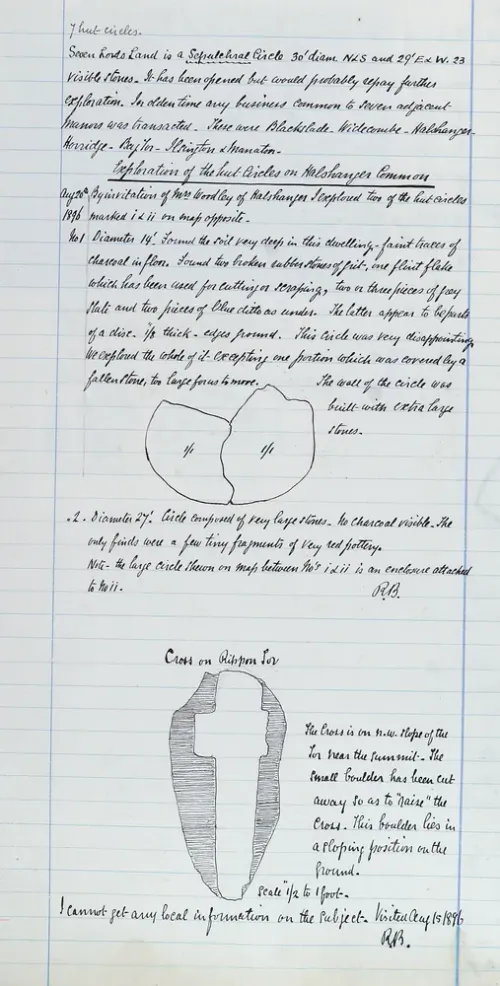 7 hut circles.
Seven Lords Land is a Sepulchral Circle 30' diam N&S and 29' E&W. 23
visible stones. It has been opened but would probably repay further
exploration. In olden time any business common to seven adjacent
manors was transacted. These were Blackslade - Widecombe - Halshanger -
Horridge - Bagtor - Ilsington & Manaton.
Exploration of the hut Circles on Halshanger Common
Aug 26th By invitation of Mrs Woodley of Halshanger I explored two of the hut circles
1896 marked i & ii on map opposite.
No 1 Diameter 14'. Found the soil very deep in this dwelling - faint traces of
charcoal in floor. Found two broken rubber stones of grit, one flint flake
which has been used for cutting or scraping, two or three pieces of grey
slate and two pieces of blue ditto as under. The latter appear to be parts
of a disc. 1/8 thick - edges ground. This circle was very disappointing,
We explored the whole of it excepting one portion which was covered by a
fallen stone, too large for us to move. The wall of the circle was
built with extra large
stones.
1/1 1/1
. 2. Diameter 27'. Circle composed of very large stones - No charcoal visible. The
only finds were a few tiny fragments of very red pottery.
Note - the large circle shewn on map between Nos i & ii is an enclosure attached
to No ii. R.B.
Cross on Rippon Tor
The Cross is on n.w. slope of the
Tor near the summit. The
small boulder has been cut
away so as to "raise" the
Cross. This boulder lies in
a sloping position on the
ground.
Scale "1/2 to 1 foot.
I cannot get any local information on the subject. Visited Aug 15 1896
R.B.